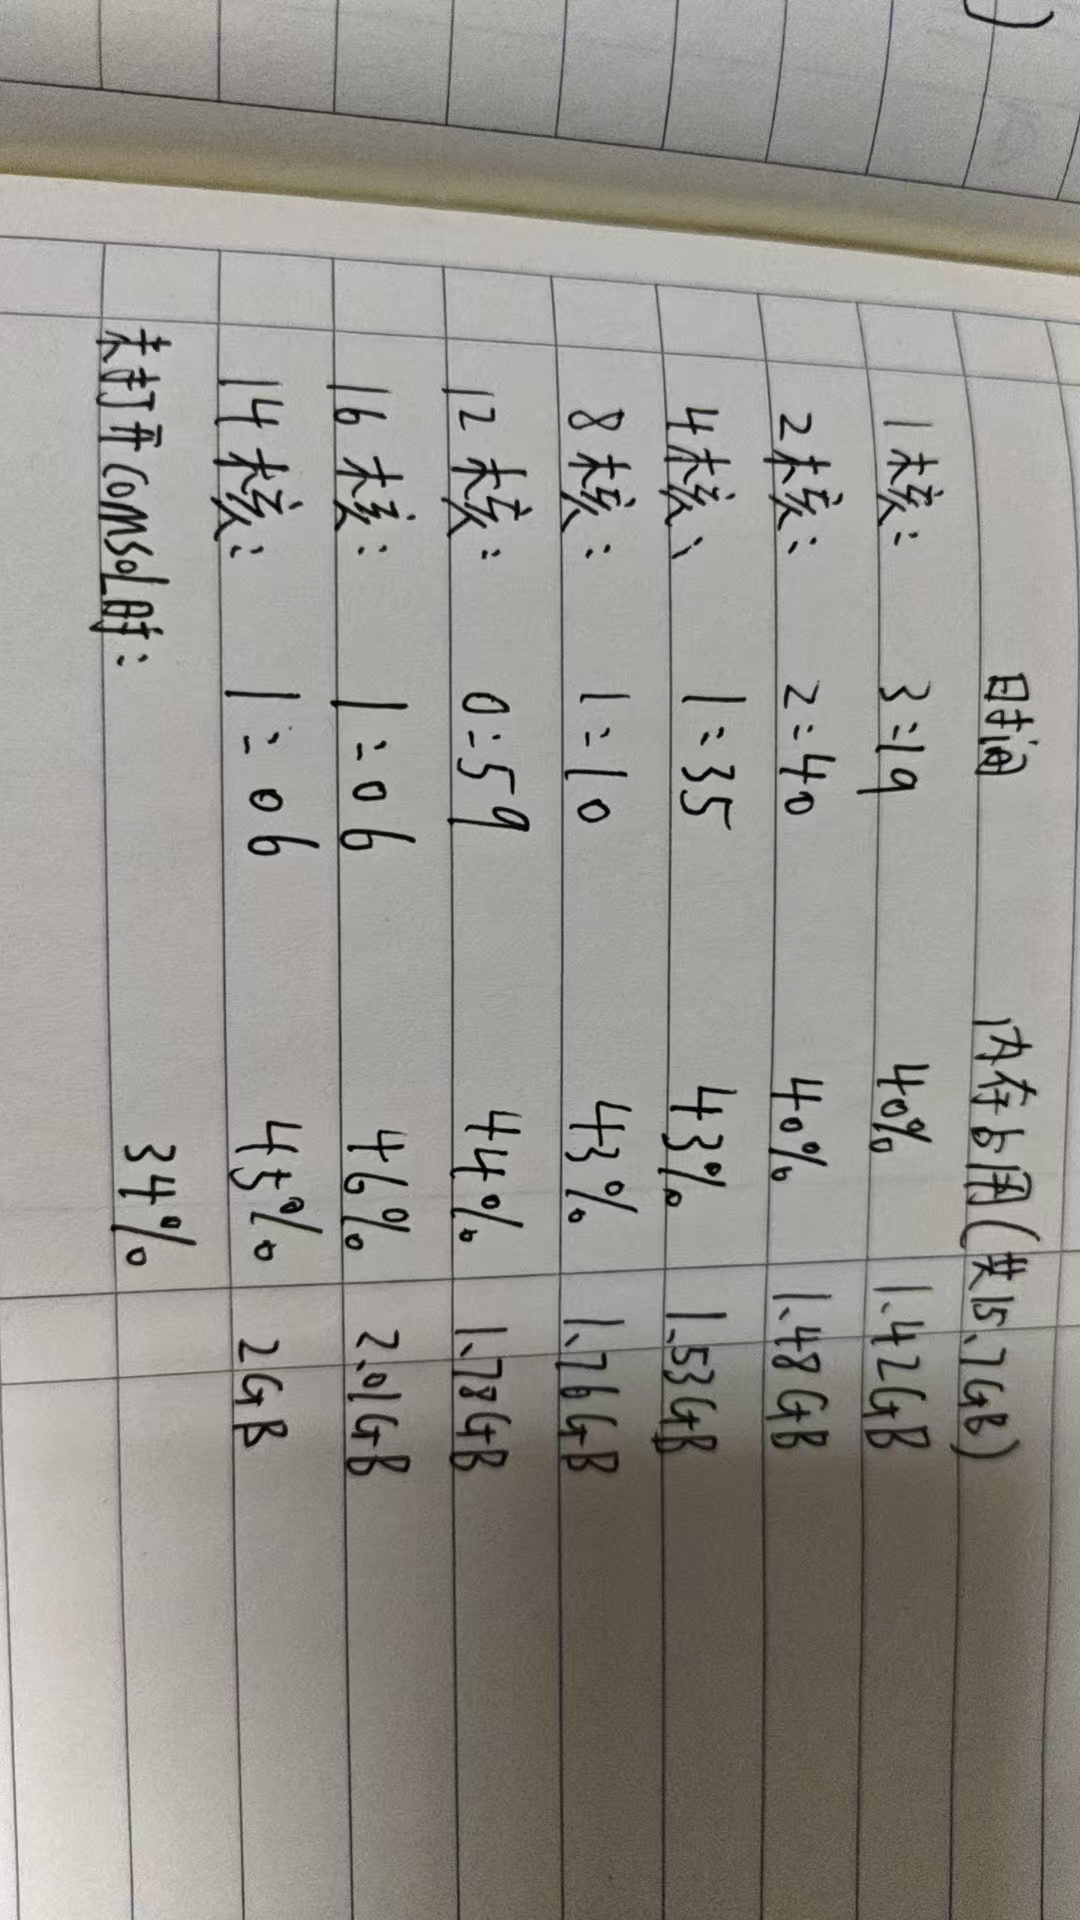 时间 内存占用(共15.7GB)
1核: 3:19 40% 1.42GB
2核: 2:40 40% 1.48GB
4核: 1:35 43% 1.53GB
8核: 1:10 43% 1.76GB
12核: 0:59 44% 1.78GB
16核: 1:06 46% 2.01GB
14核: 1:06 45% 2GB
未打开COMSOL时: 34%